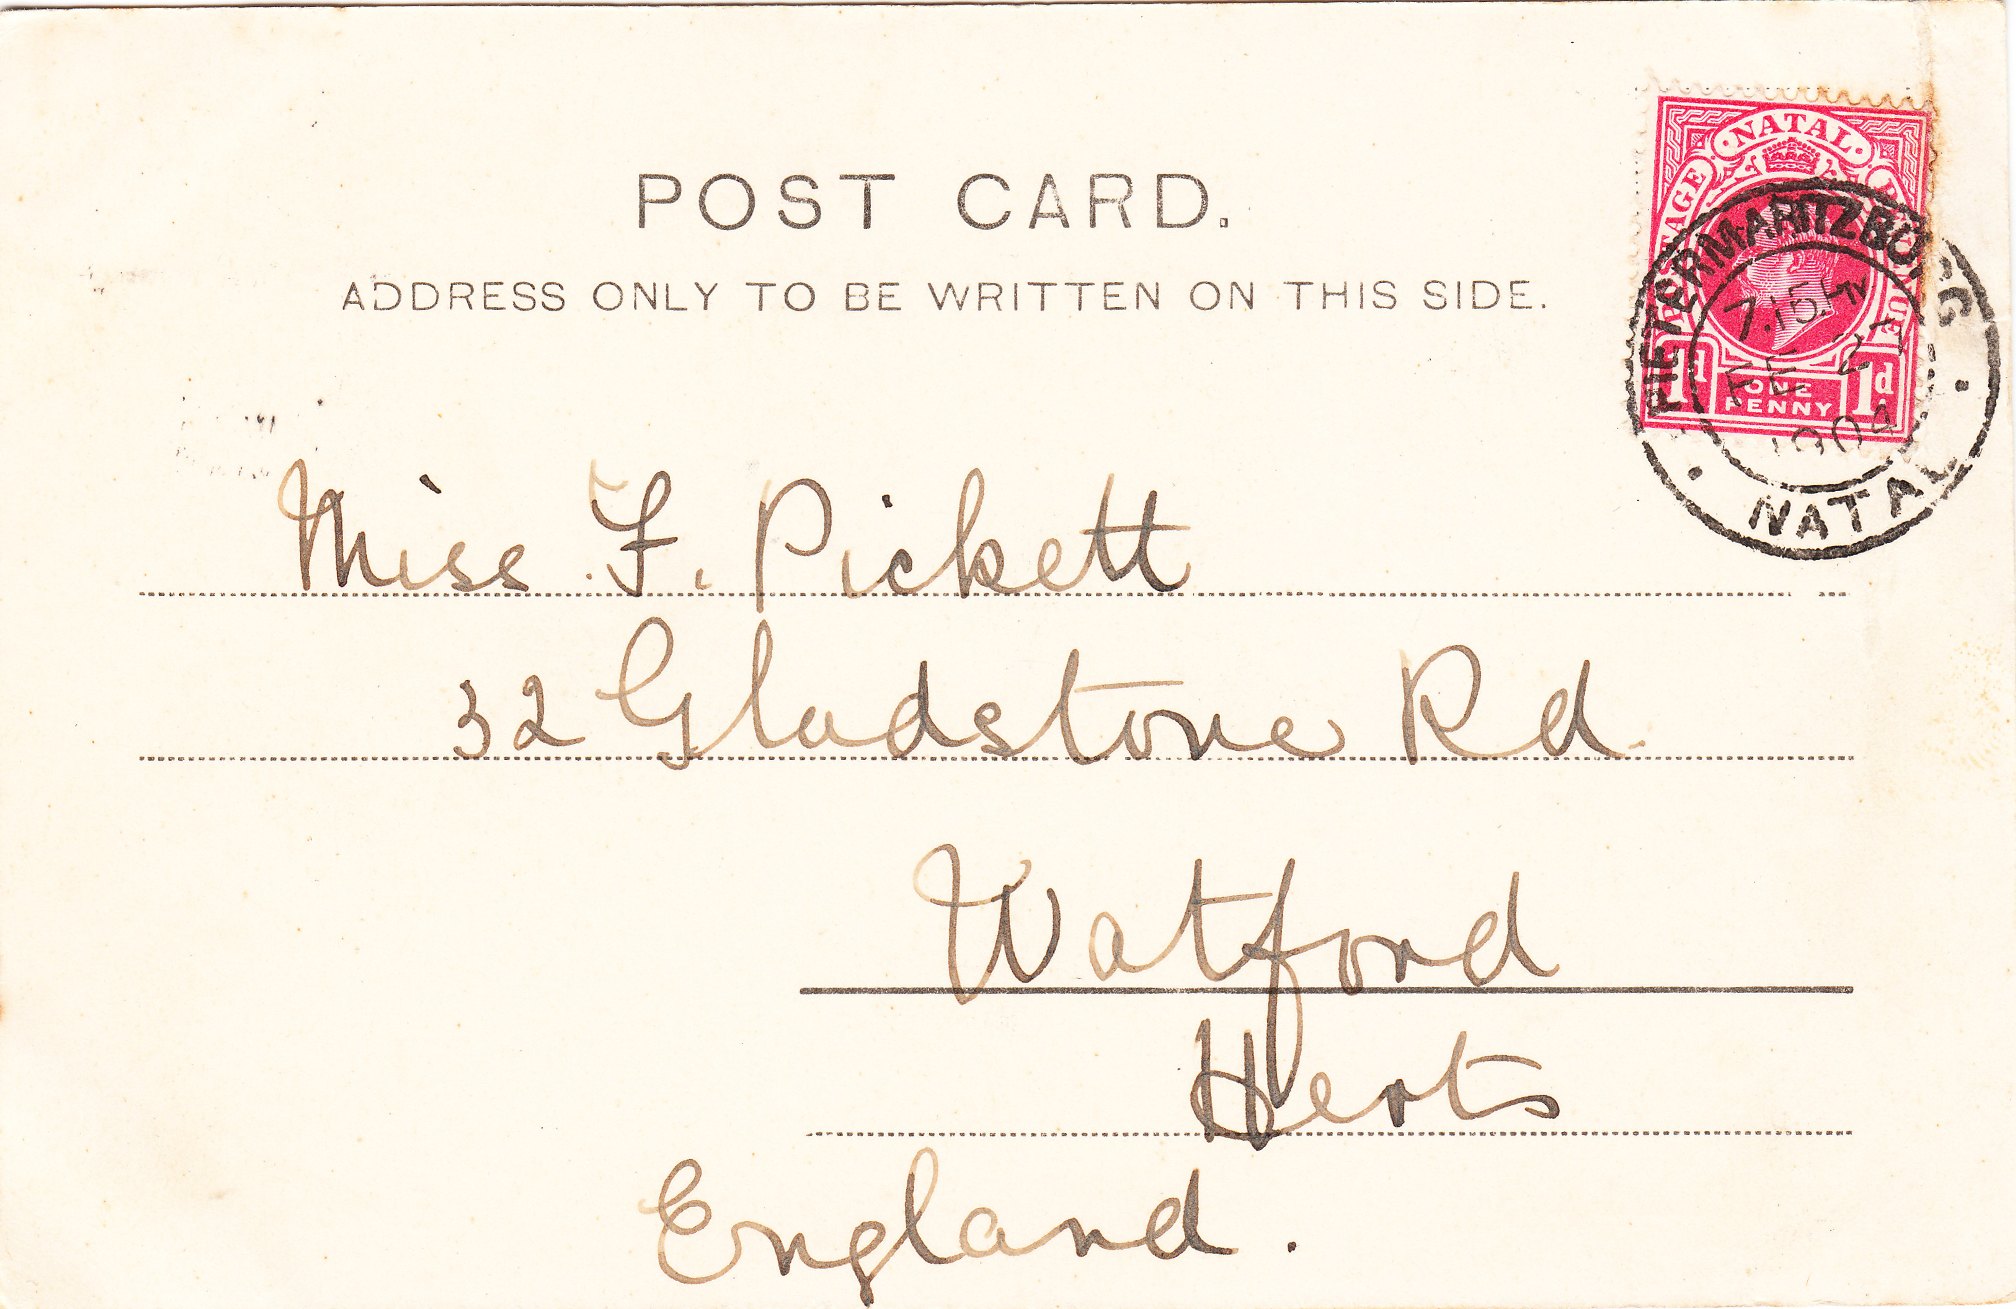 POST CARD.
ADDRESS ONLY TO BE WRITTEN ON THIS SIDE.
NATAL
POSTAGE REVENUE
1d ONE PENNY 1d
PIETERMARITZBURG
1904
NATAL
Miss F. Pickett
32 Gladstone Rd.
Watford
Herts
England.